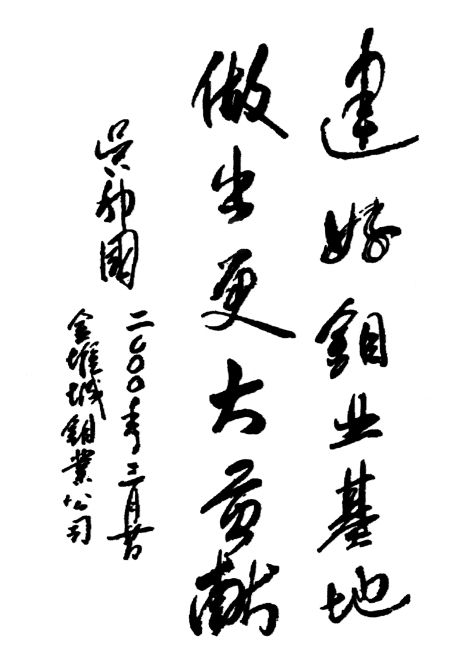 建好鉬业基地
做出更大贡献
吳邦國
二〇〇〇年三月廿日
金堆城鉬業公司